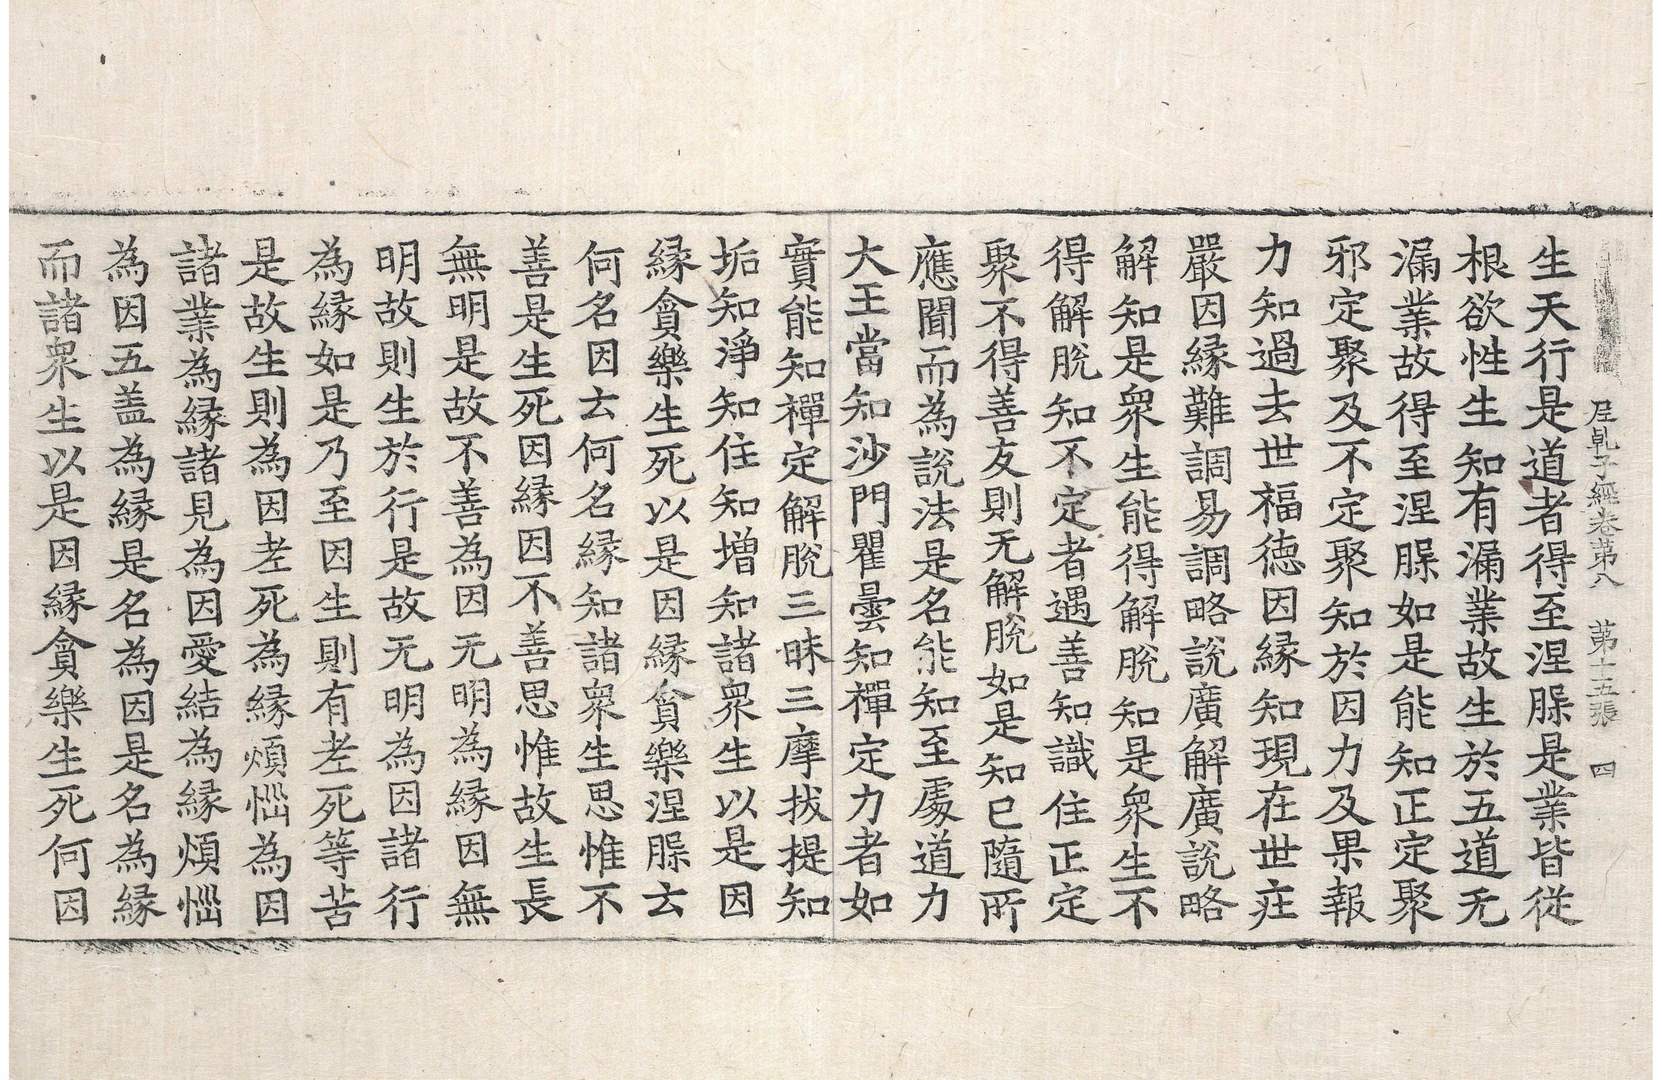 𡰱乹子經卷苐八　苐十五張　四
生天行是道者得至涅𦙃是業皆從
根欲性生知有漏業故生於五道无
漏業故得至涅𦙃如是能知正定聚
邪定聚及不定聚知於因力及果報
力知過去世福徳因緣知現在世㽵
嚴因緣難調易調略說廣解廣說略
解知是衆生能得解脫知是衆生不
得解脫知不定者遇善知識住正定
聚不得善友則无解脫如是知已隨所
應聞而為說法是名能知至處道力
大王當知沙門瞿曇知禪定力者如
實能知禪定解脫三昧三摩拔提知
垢知淨知住知增知諸衆生以是因
緣貪樂生死以是因緣貪樂涅𦙃云
何名因云何名緣知諸衆生思惟不
善是生死因緣因不善思惟故生長
無明是故不善為因无明為緣因無
明故則生於行是故无明為因諸行
為緣如是乃至因生則有老死等苦
是故生則為因老死為緣煩惱為因
諸業為緣諸見為因愛結為緣煩惱
為因五盖為緣是名為因是名為緣
而諸衆生以是因緣貪樂生死何因